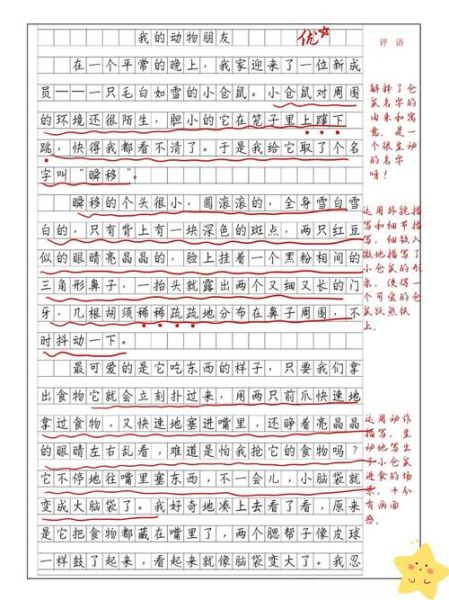 我的动物朋友
优
评语
在一个平常的晚上，我家迎来了一位新成
员——一只毛白如雪的小仓鼠。小仓鼠对周围
的环境还很陌生，胆小的它在笼子里上蹿下
跳，快得我都看不清了。于是我给它取了个名
字叫“瞬移”。
解释了仓
鼠名字的
由来和寓
意，是一
个很生动
的名字
呀！
瞬移的个头很小，圆滚滚的，全身雪白雪
白的，只有背上有一块深色的斑点，两只红豆
似的眼睛亮晶晶的，脸上挂着一个黑粉相间的
三角形鼻子，一抬头就露出两个又细又长的门
牙，几根胡须稀稀疏疏地分布在鼻子周围，不
时抖动一下。
运用外貌描
写和细节描
写，细致入
微地描写了
小仓鼠的形
象，使得一
个可爱的仓
鼠跃然纸
上。
最可爱的是它吃东西的样子，只要我们拿
出食物它就会立刻扑过来，用两只前爪快速地
拿过食物，又快速地塞进嘴里，还睁着亮晶晶
的眼睛左右乱看，难道是怕我抢它的食物吗？
它不停地往嘴里塞东西，不一会儿，小脑袋就
变成大脑袋了。我好奇地凑上去看了看，原来
是它把食物都藏在嘴里了，两个腮帮子像皮球
一样鼓了起来，看起来就像脑袋变大了。我忍
运用动作
描写，生
动地写出
了小仓鼠
进食的场
景，十分
有画面
感。